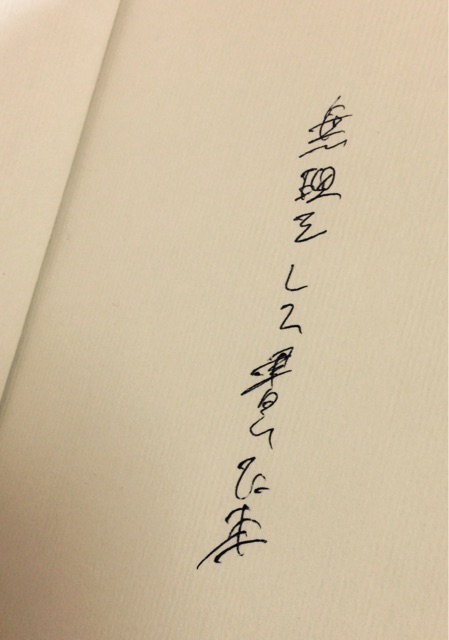 無理をして書いた本